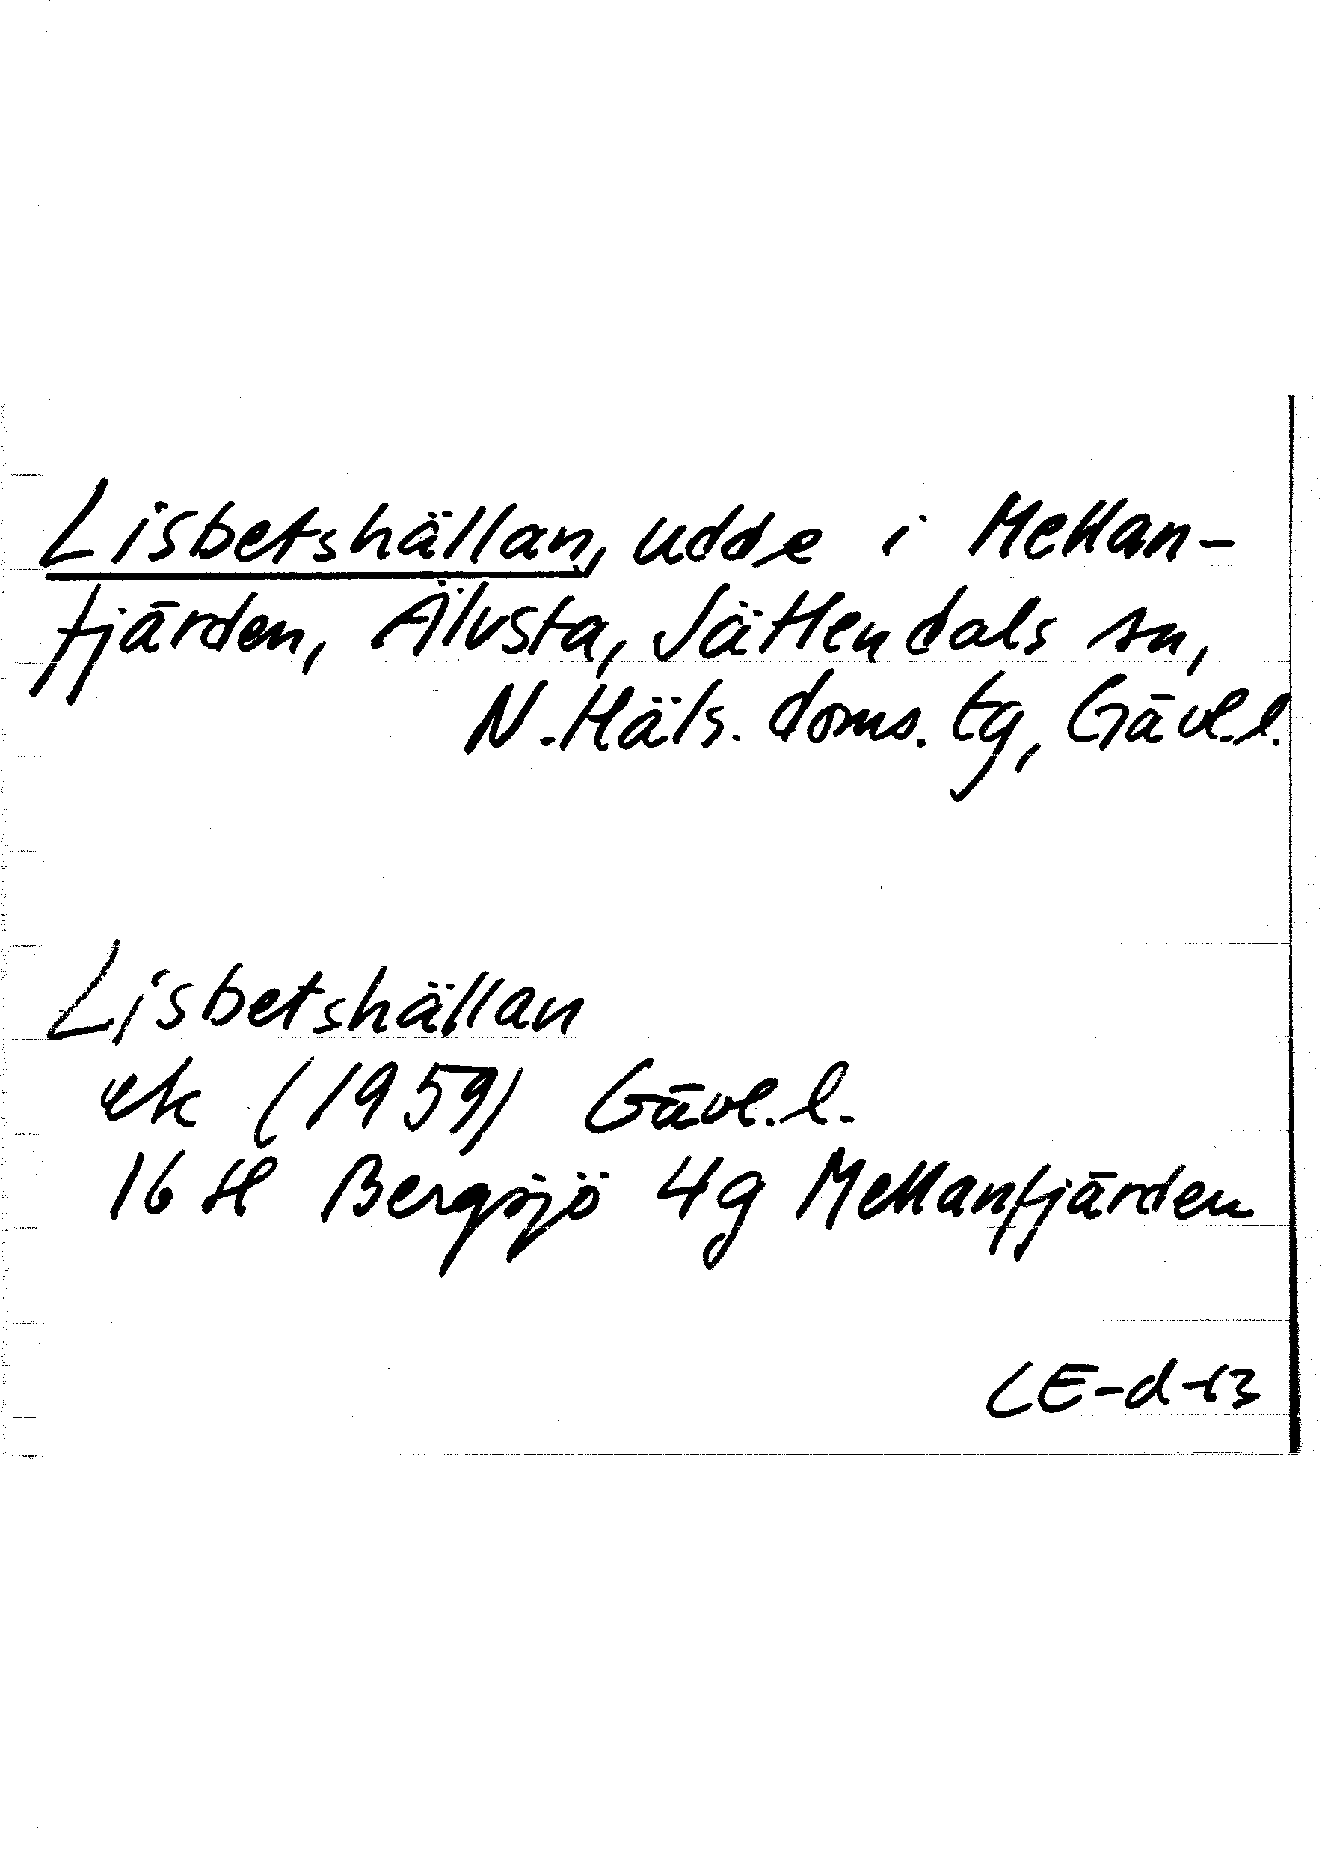 Lisbetshällan, udde i Mellan-
fjärden, Älvsta, Jättendals sn,
N. Häls. doms. tg, Gävl.l.
Lisbetshällan
ek (1959) Gävl.l.
16 H Bergsjö 4g Mellanfjärden
CE-d-13